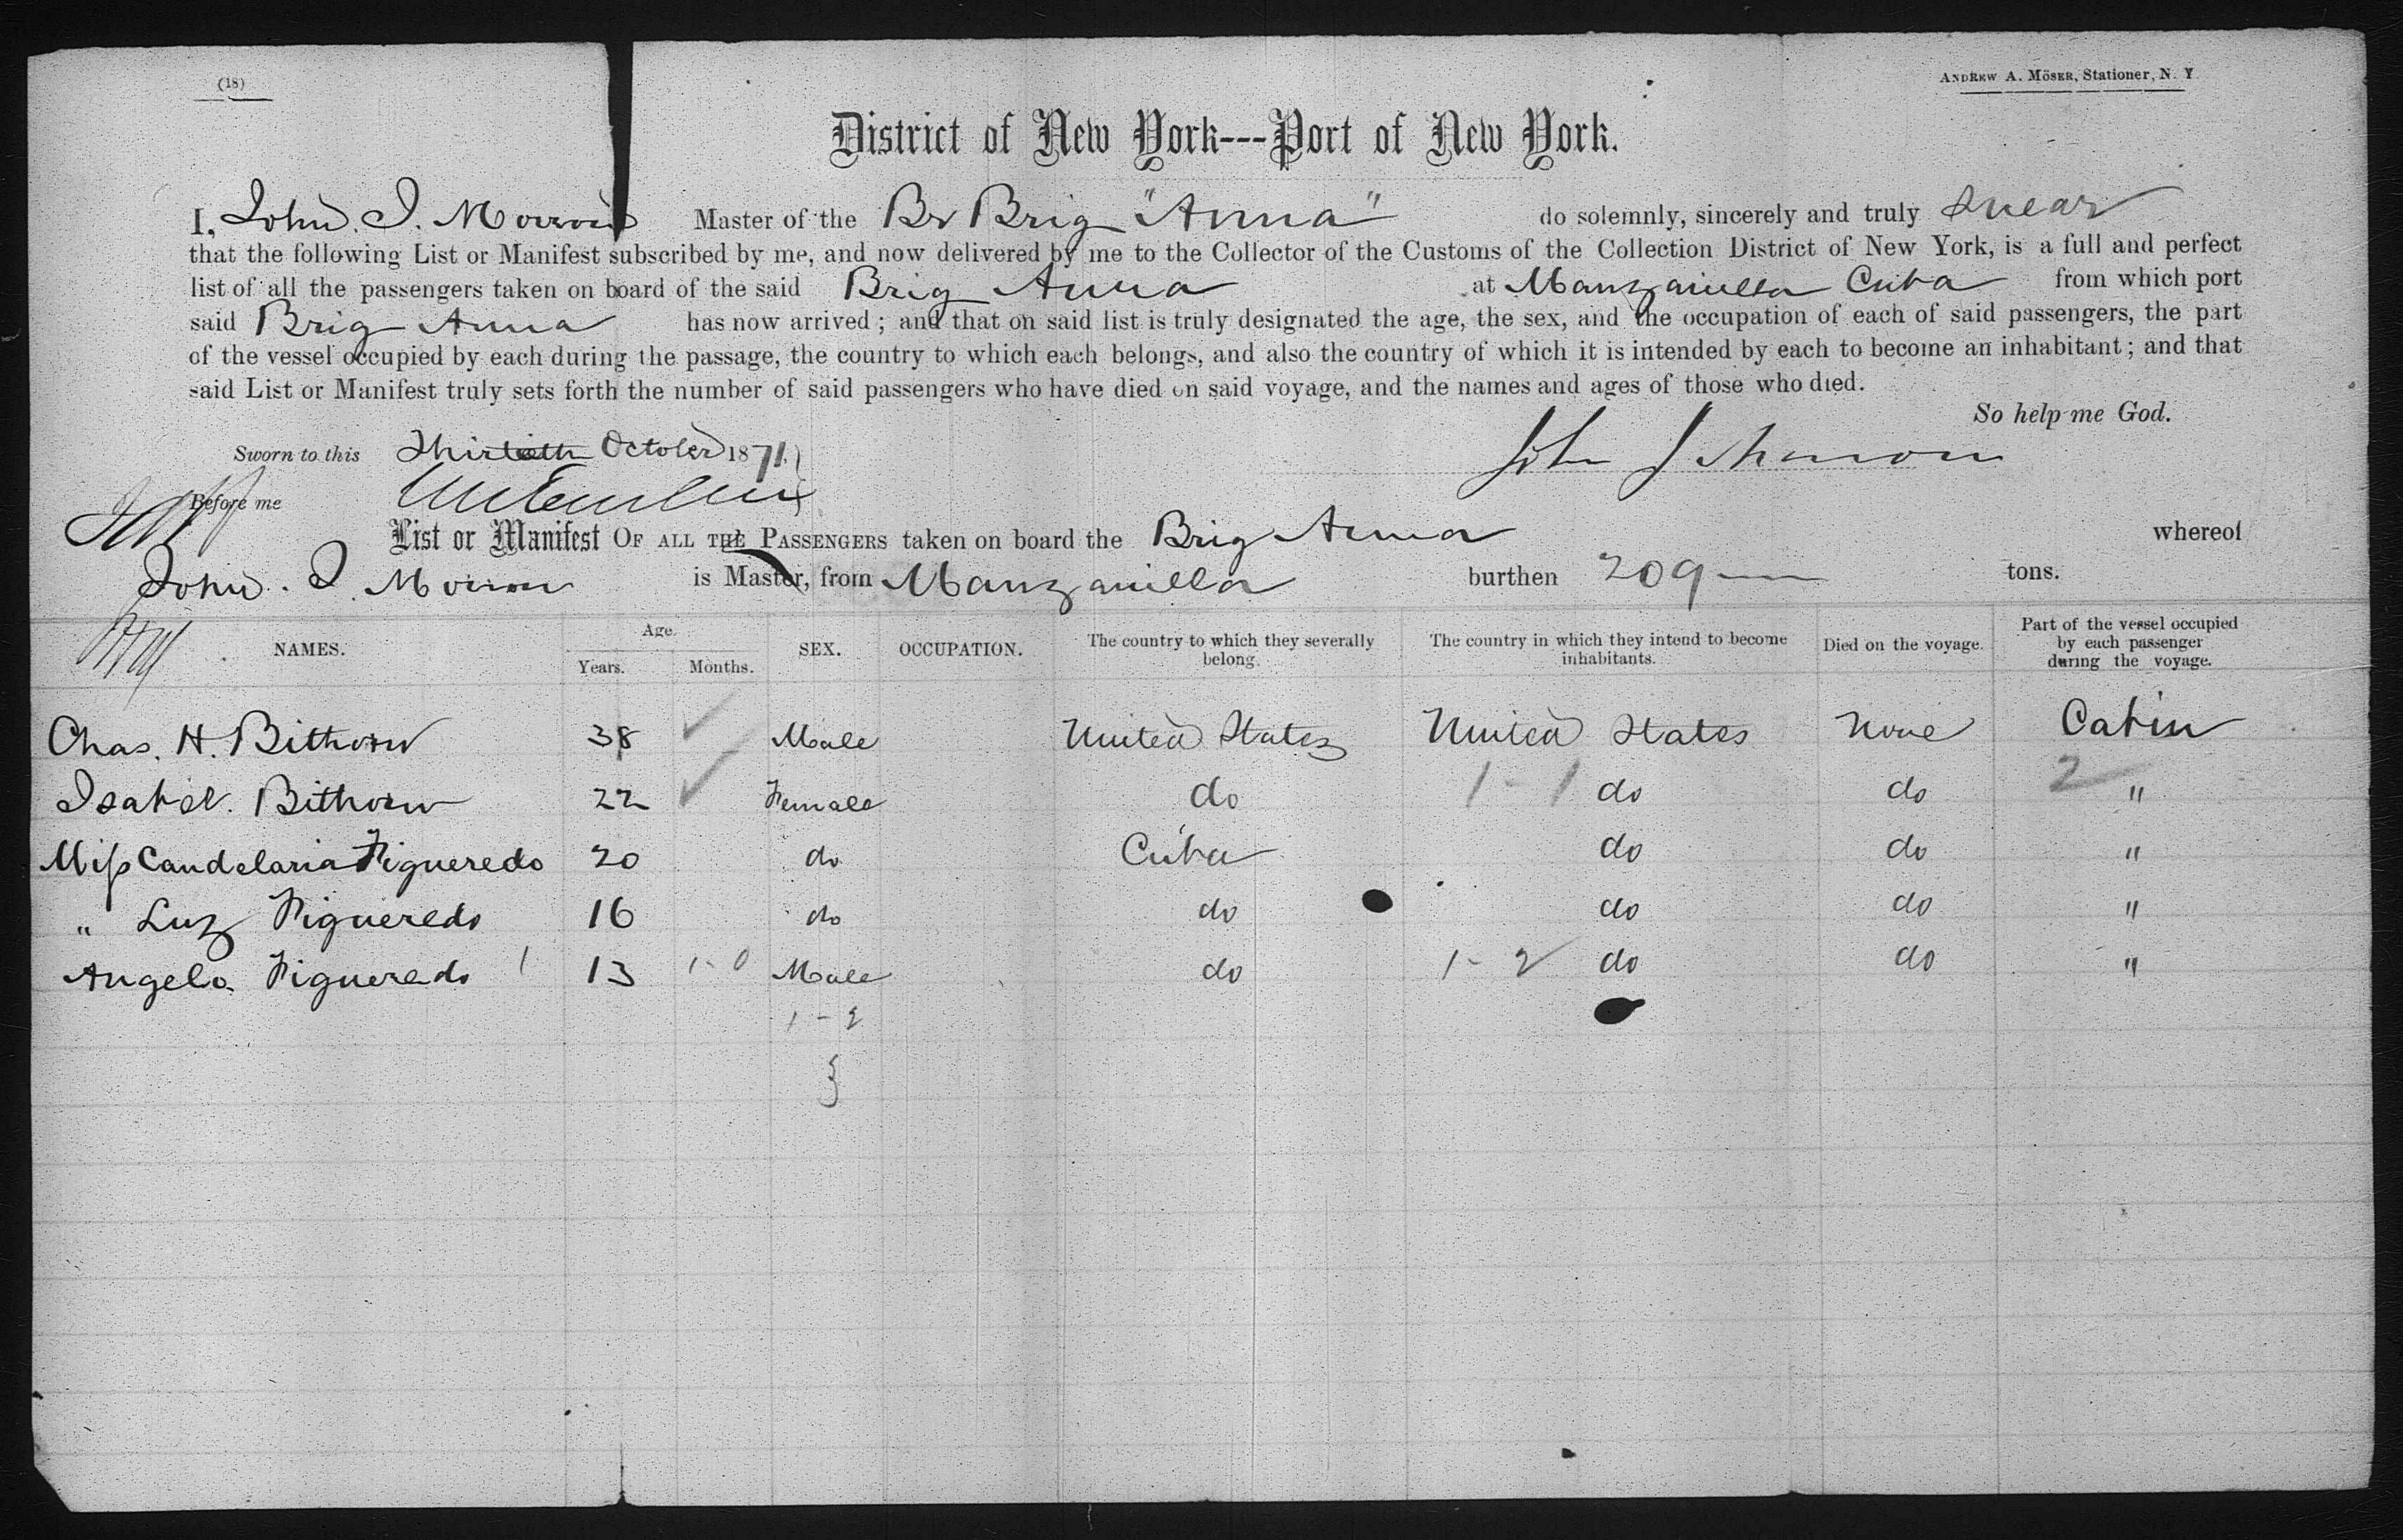 (18)
ANDREW A. MÖSER, Stationer, N. Y
District of New York---Port of New York.
I, John. I. Morrow Master of the Br Brig "Anna" do solemnly, sincerely and truly swear
that the following List or Manifest subscribed by me, and now delivered by me to the Collector of the Customs of the Collection District of New York, is a full and perfect
list of all the passengers taken on board of the said Brig Anna at Manzanilla Cuba from which port
said Brig Anna has now arrived; and that on said list is truly designated the age, the sex, and the occupation of each of said passengers, the part
of the vessel occupied by each during the passage, the country to which each belongs, and also the country of which it is intended by each to become an inhabitant; and that
said List or Manifest truly sets forth the number of said passengers who have died on said voyage, and the names and ages of those who died.
So help me God.
Sworn to this Thirtieth October 1871
John J
Before me
List or Manifest OF ALL THE PASSENGERS taken on board the Brig Anna whereof
John. I. Morrow is Master, from Manzanilla burthen 209 tons.
NAMES. Age. Years. Months. SEX. OCCUPATION. The country to which they severally belong. The country in which they intend to become inhabitants. Died on the voyage. Part of the vessel occupied by each passenger during the voyage.
Chas. H. Bithorn 38 Male United States United States None Cabin
Isabel. Bithorn 22 Female do 1-1 do do 2 "
Miss Candelaria Figueredo 20 do Cuba do do "
" Luz Figueredo 16 do do do do "
Angelo Figueredo 1 13 1-0 Male do 1-2 do do "
1-2